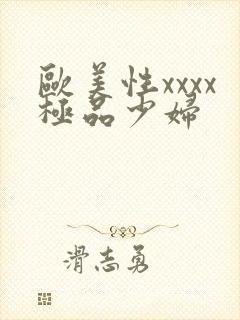 歐美性xxxx
極品少婦
滑志勇